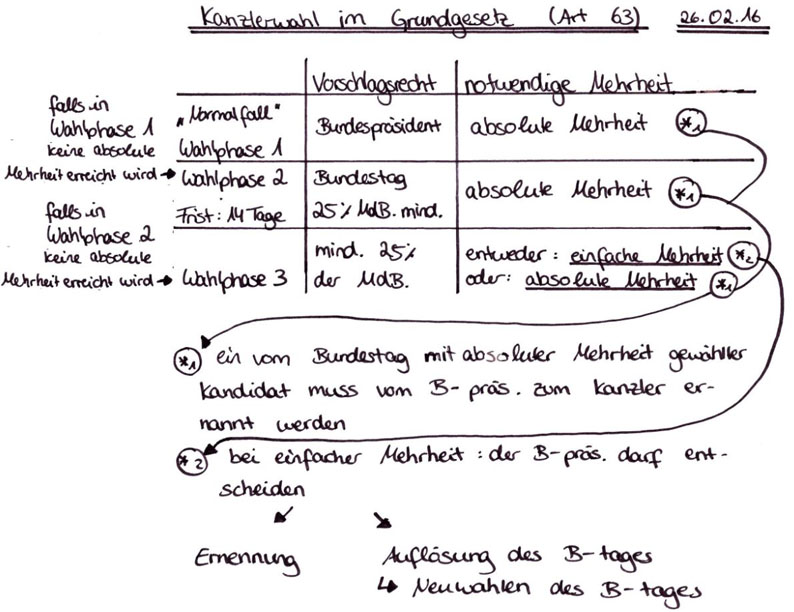 Kanzlerwahl im Grundgesetz (Art 63) 26.02.16
Vorschlagsrecht notwendige Mehrheit
falls in
Wahlphase 1
keine absolute
Mehrheit erreicht wird →
"Normalfall"
Wahlphase 1
Bundespräsident
absolute Mehrheit *1
Wahlphase 2
Frist: 14 Tage
Bundestag
25% MdB. mind.
absolute Mehrheit *1
falls in
Wahlphase 2
keine absolute
Mehrheit erreicht wird →
Wahlphase 3
mind. 25%
der MdB.
entweder: einfache Mehrheit *2
oder: absolute Mehrheit *1
*1 ein vom Bundestag mit absoluter Mehrheit gewählter
Kandidat muss vom B-präs. zum Kanzler er-
nannt werden
*2 bei einfacher Mehrheit: der B-präs. darf ent-
scheiden
Ernennung
Auflösung des B-tages
↳ Neuwahlen des B-tages